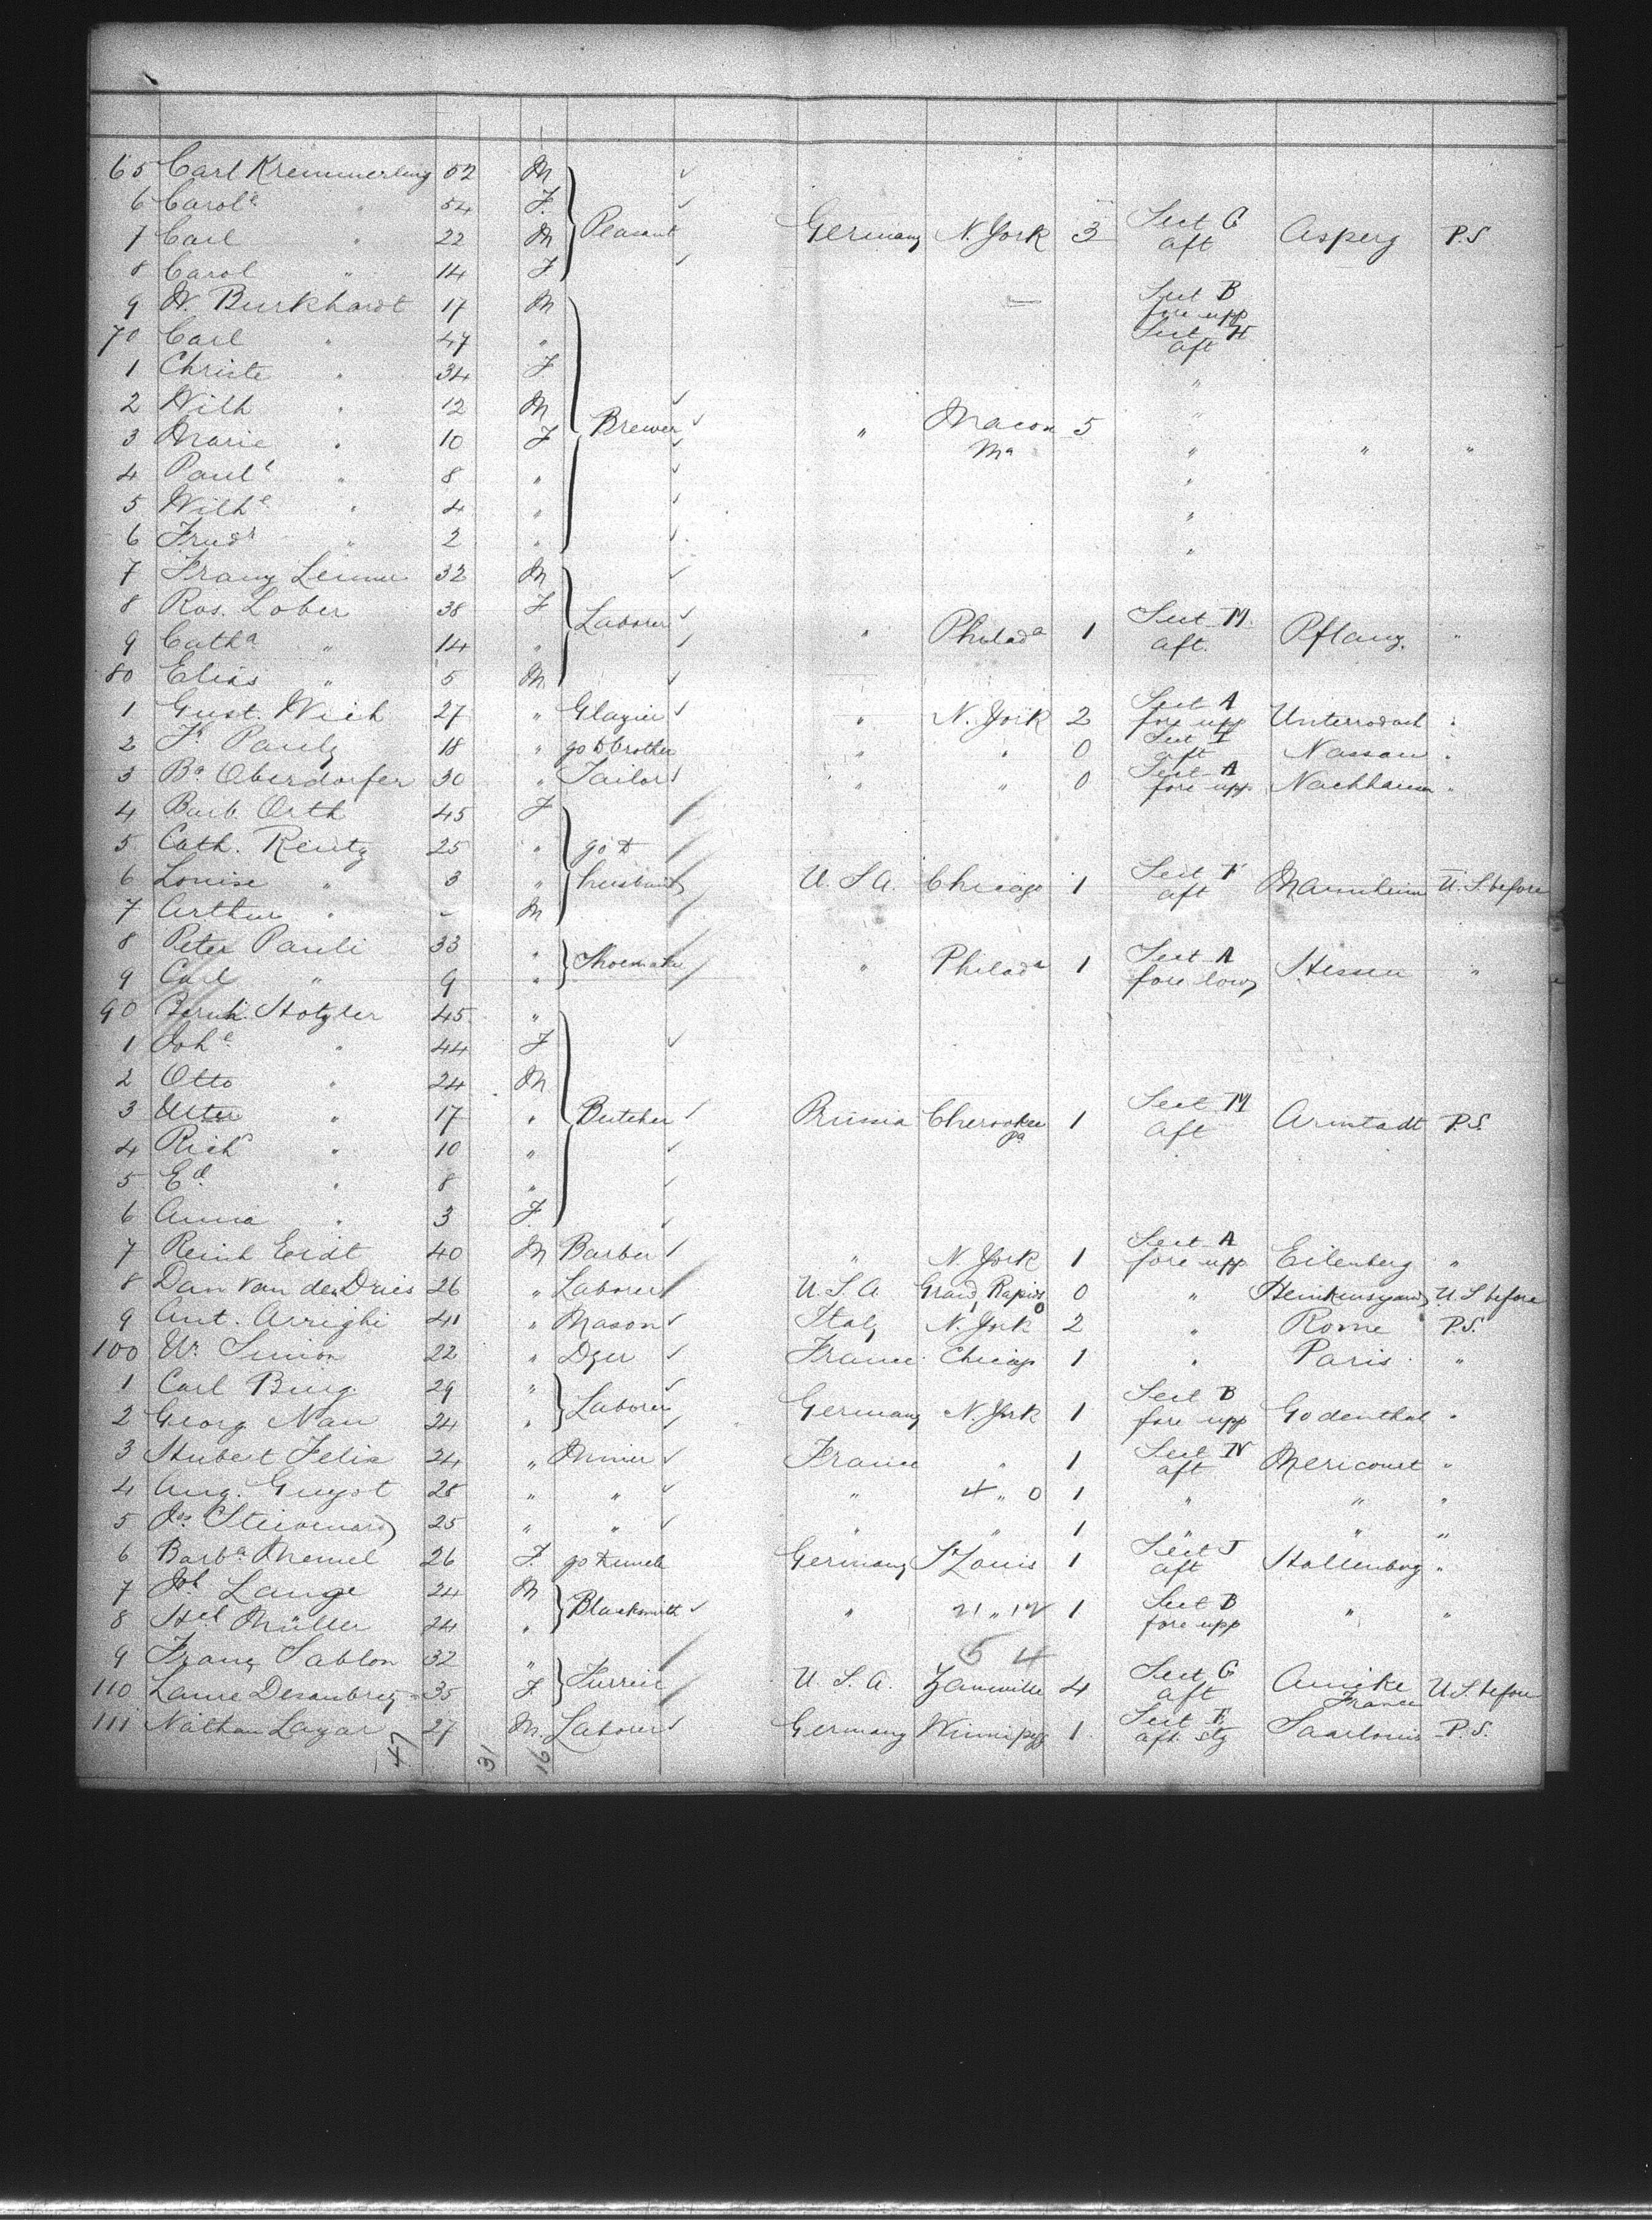 65 Carl Kremmerling 52 M
6 Carolᵉ " 54 F.
7 Carl " 22 M Peasant Germany N. York 3 Sect G aft Asperg P.S
8 Carol " 14 F
9 W. Burkhardt 17 M Sect B fore upp
70 Carl " 47 " Sect H aft
1 Christe " 34 F "
2 Wilh " 12 M "
3 Marie " 10 F Brewer " Macon Mᵃ 5 " " "
4 Paulᵉ " 8 " "
5 Wilhᵉ " 4 " "
6 Fredʳ " 2 " "
7 Franz 32 M
8 Ros. Lober 38 F Laborer " Philadᵃ 1 Sect M. aft. Pflanz. "
9 Cathᵃ " 14 "
80 Elias " 5 M
1 Gust. Wich 27 " Glazier " N. York 2 Sect A fore upp Unterrodach "
2 Fʳ Pauly 18 " go to brother " " 0 Sect I aft Nassau "
3 Bᵃ Oberdorfer 30 " Tailor " " 0 Sect A fore upp "
4 Barb. Orth 45 F
5 Cath. Reutz 25 " go to
6 Louise " 3 " husband U.S.A. Chicago 1 Sect F aft Mannheim U.S. before
7 Arthur " - M
8 Peter Pauli 33 " Shoemaker " Philadᵃ 1 Sect A fore low Hessen "
9 Carl " 9 "
90 Bernh. Hotzler 45 "
1 Johᵉ " 44 F
2 Otto " 24 M
3 " 17 " Butcher Prussia Cherookee Pa 1 Sect M aft Armtadt P.S.
4 Richᵈ " 10 "
5 Eᵈ " 8 "
6 Anna " 3 F.
7 Reinh Eidt 40 M Barber " N. York 1 Sect A fore upp Eilenberg "
8 Dan van den Dries 26 " Laborer U.S.A. Grand Rapids 0 " U.S. before
9 Ant. Arrighi 41 " Mason Italy N. York 2 " Rome P.S.
100 Simon 22 " Dyer France Chicago 1 " Paris "
1 Carl Burg 29 " Laborer
2 Georg Nau 24 " Germany N. York 1 Sect B fore upp Godenthal "
3 Hubert Felix 24 " Miner France " 1 Sect N aft Mericourt "
4 Aug. Guyot 28 " " " 4 " 0 1 " " "
5 Jos Steivenard 25 " " " " 1 " " "
6 Barbᵃ Memel 26 F. go to uncle Germany St Louis 1 Sect J aft Hollenberg "
7 Lange 24 M
8 Müller 24 " Blacksmith " 21 " 12 1 Sect B fore upp " "
9 Franz Sablon 32 " 5 4
110 Laure Desaubrez 35 F. Furrier U.S.A. Zanesville 4 Sect G aft Aniche France U.S. before
111 Nathan Lazar 27 M. Laborer Germany Winnipeg 1 Sect F. aft. stg Saarlouis P.S.
47 31 16